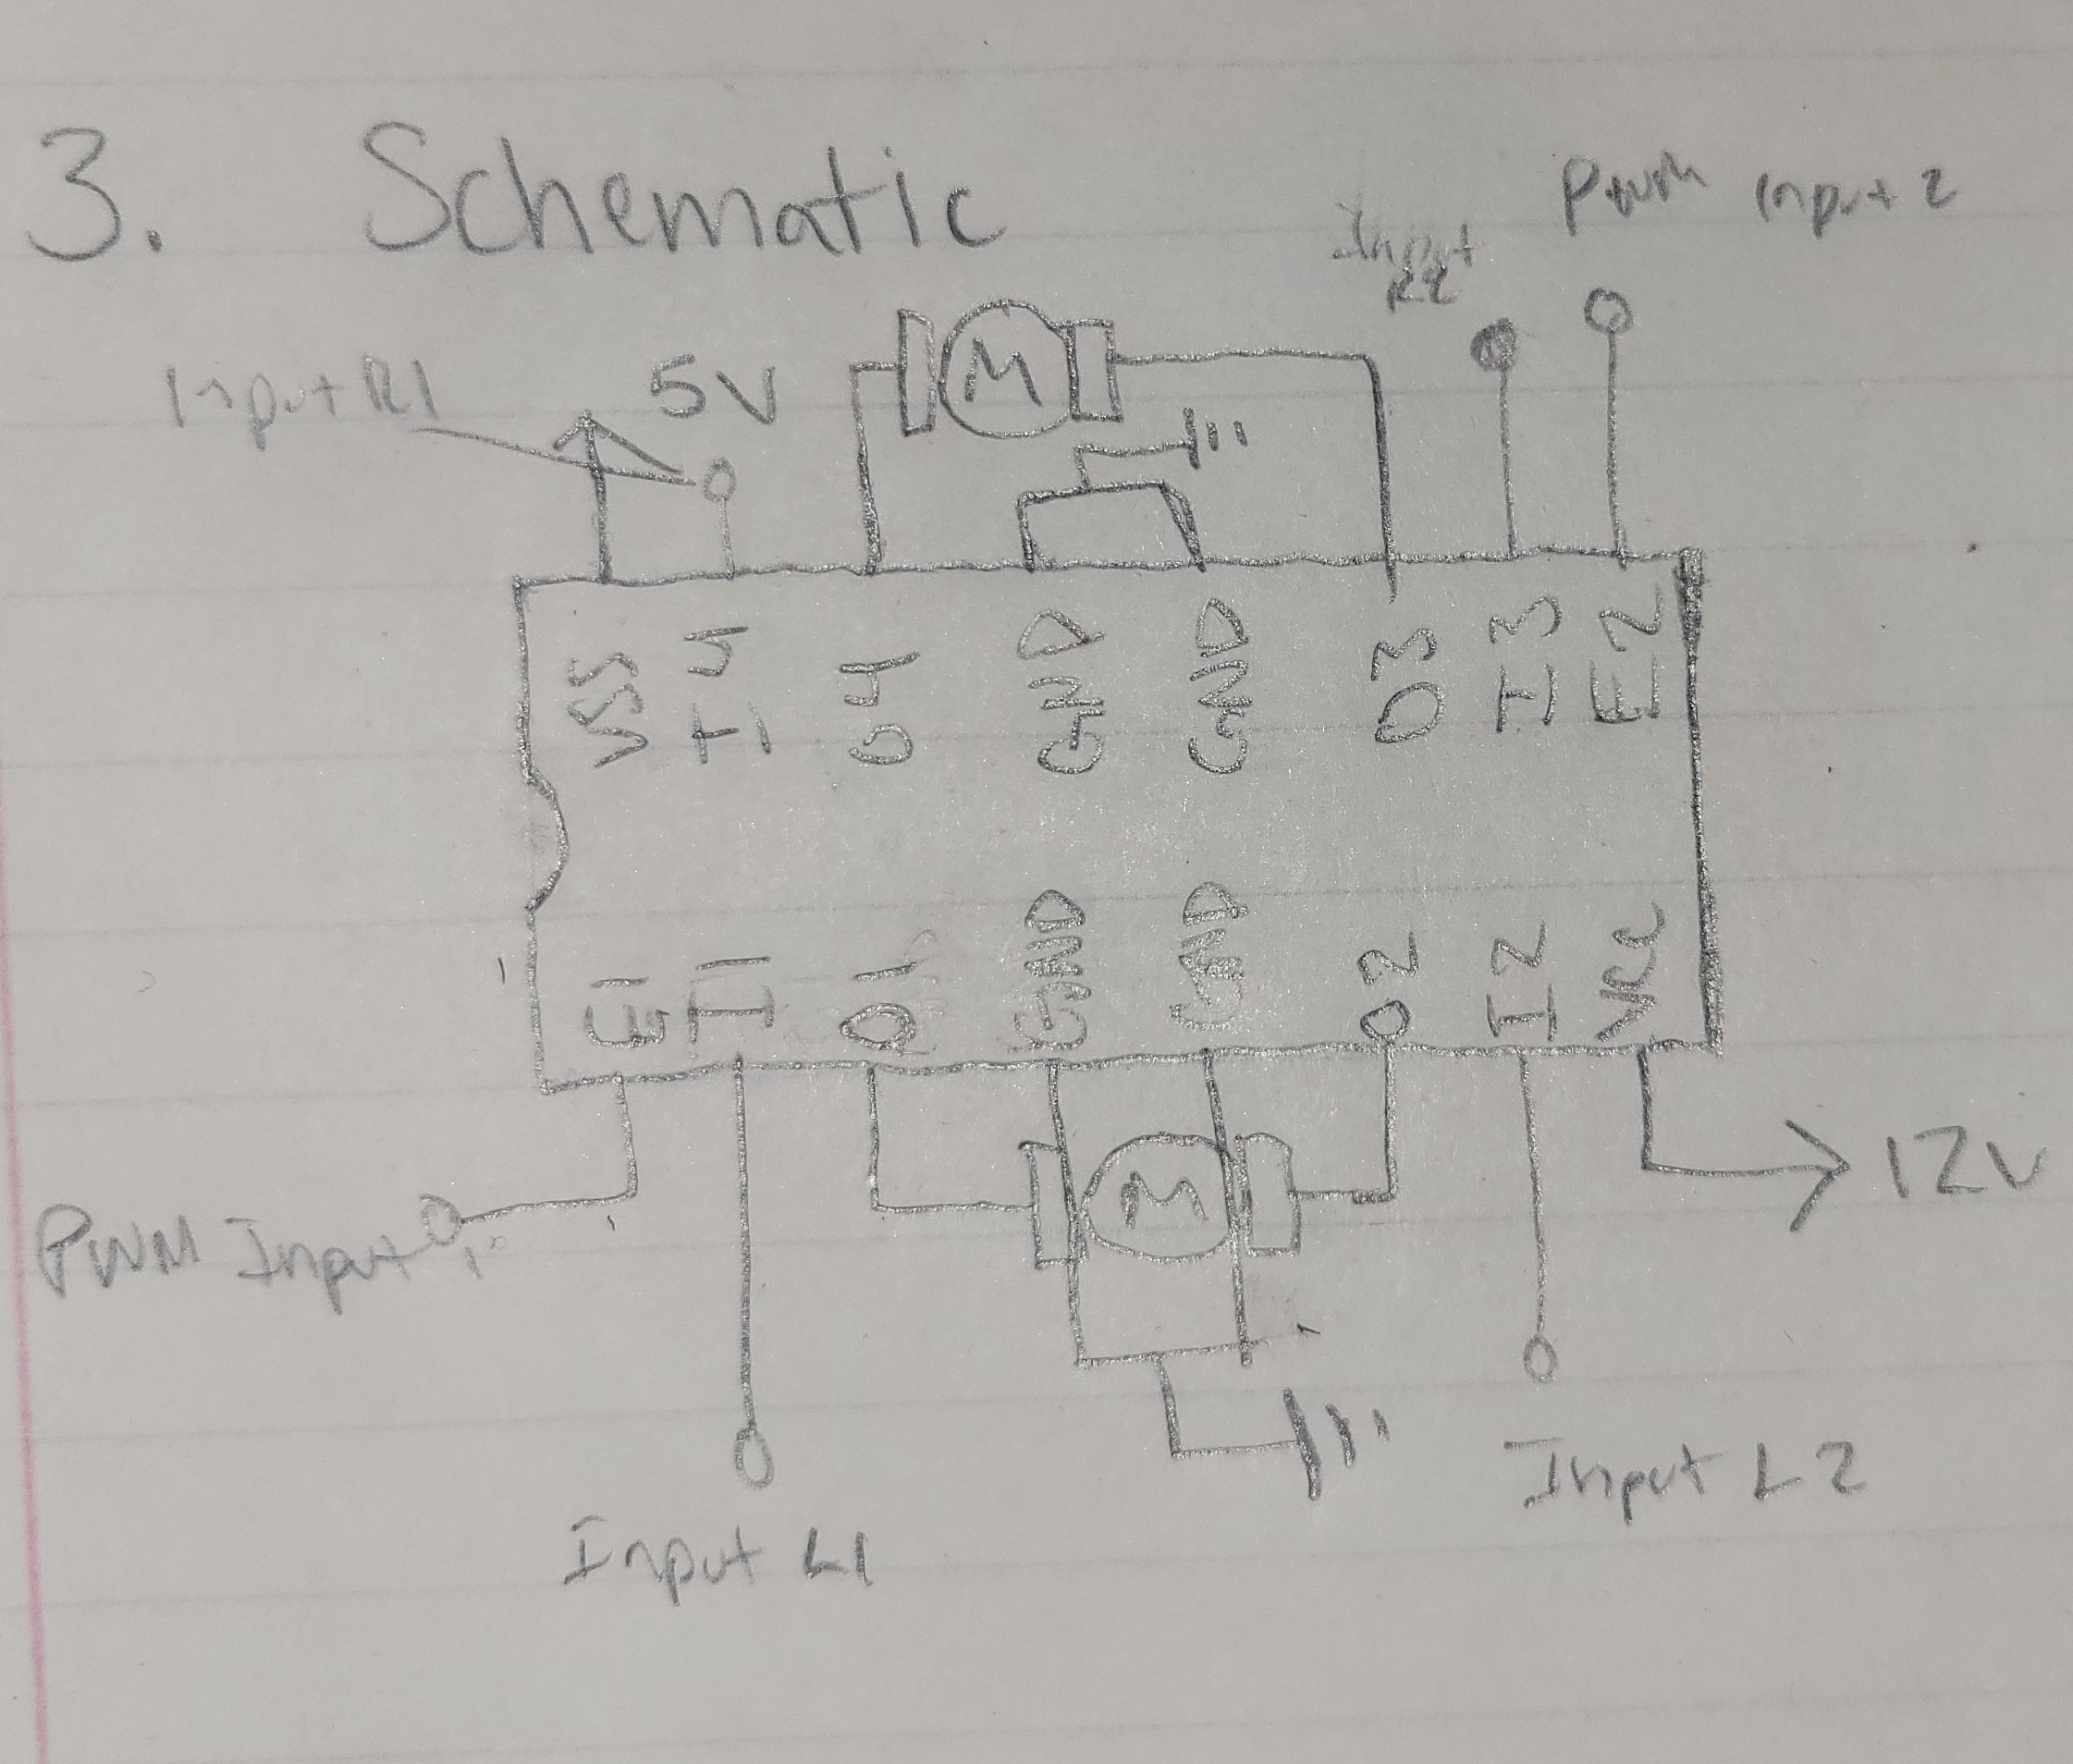 3. Schematic
PWM Input 2
Input R2
Input R1
5V
M
VSS I4 O4 GND GND O3 I3 E2
E1 I1 O1 GND GND O2 I2 VCC
M
12V
PWM Input 1
Input L2
Input L1